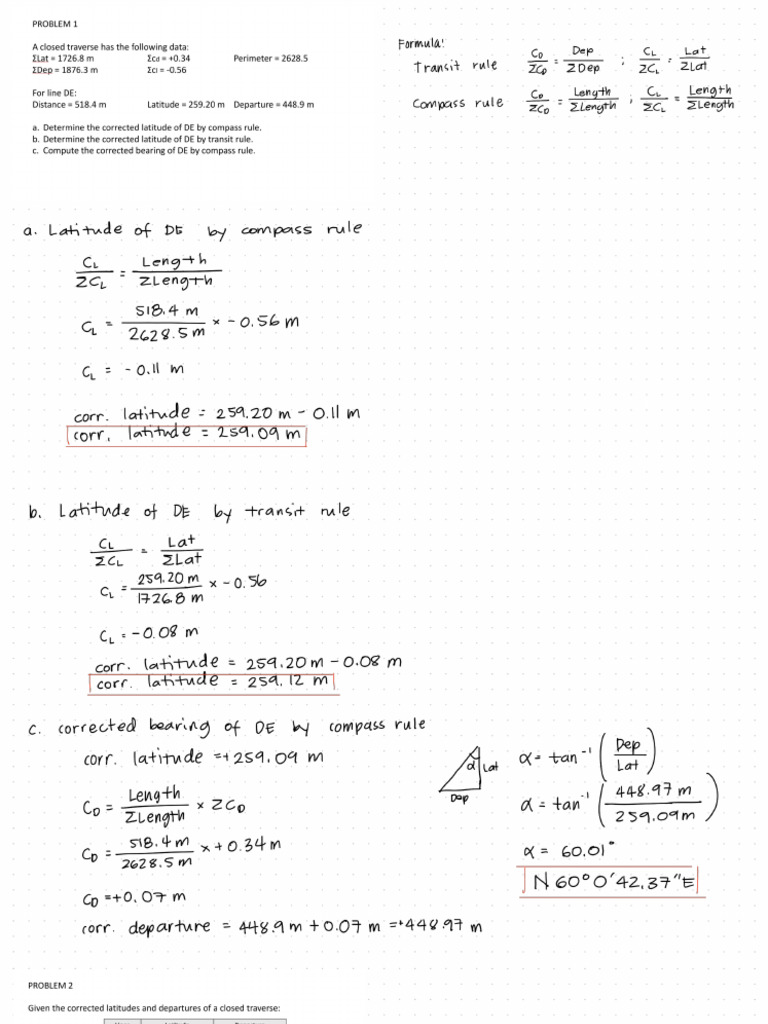 PROBLEM 1
A closed traverse has the following data:
ΣLat = 1726.8 m Σcd = +0.34 Perimeter = 2628.5
ΣDep = 1876.3 m Σcl = -0.56
For line DE:
Distance = 518.4 m Latitude = 259.20 m Departure = 448.9 m
a. Determine the corrected latitude of DE by compass rule.
b. Determine the corrected latitude of DE by transit rule.
c. Compute the corrected bearing of DE by compass rule.
Formula:
Transit rule C_D/ΣC_D = Dep/ΣDep ; C_L/ΣC_L = Lat/ΣLat
Compass rule C_D/ΣC_D = Length/ΣLength ; C_L/ΣC_L = Length/ΣLength
a. Latitude of DE by compass rule
C_L/ΣC_L = Length/ΣLength
C_L = 518.4 m/2628.5 m × -0.56 m
C_L = -0.11 m
corr. latitude = 259.20 m - 0.11 m
corr. latitude = 259.09 m
b. Latitude of DE by transit rule
C_L/ΣC_L = Lat/ΣLat
C_L = 259.20 m/1726.8 m × -0.56
C_L = -0.08 m
corr. latitude = 259.20 m - 0.08 m
corr. latitude = 259.12 m
c. corrected bearing of DE by compass rule
corr. latitude = +259.09 m
C_D = Length/ΣLength × ΣC_D
C_D = 518.4 m/2628.5 m × +0.34 m
C_D = +0.07 m
corr. departure = 448.9 m + 0.07 m = +448.97 m
α Lat
Dep
α = tan⁻¹ (Dep/Lat)
α = tan⁻¹ (448.97 m/259.09 m)
α = 60.01°
N 60° 0' 42.37" E
PROBLEM 2
Given the corrected latitudes and departures of a closed traverse: